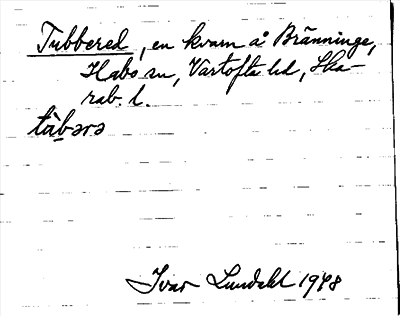 Tubbered, en kvarn å Bränninge,
Habo sn, Vartofta hd, Ska-
rab. l.
tàbərə
Ivar Lundahl 1948